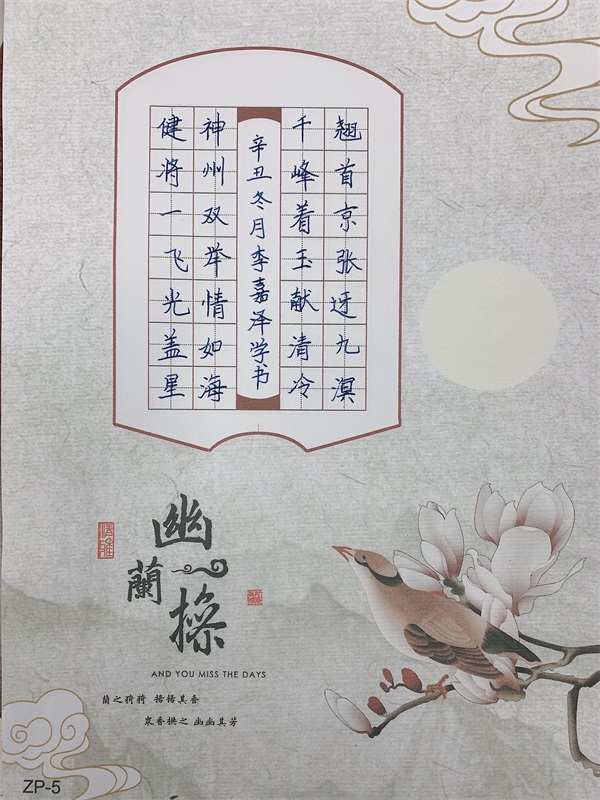 翘首京张迓九溟
千峰着玉献清泠
辛丑冬月李嘉泽学书
神州双举情如海
健将一飞光盖星
幽蘭操
AND YOU MISS THE DAYS
蘭之猗猗 揚揚其香
衆香拱之 幽幽其芳
ZP-5